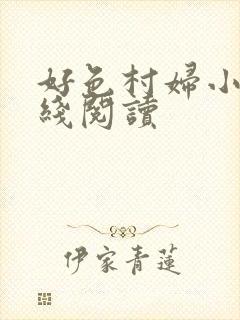 好色村婦小
綫閱讀
伊家青蓮